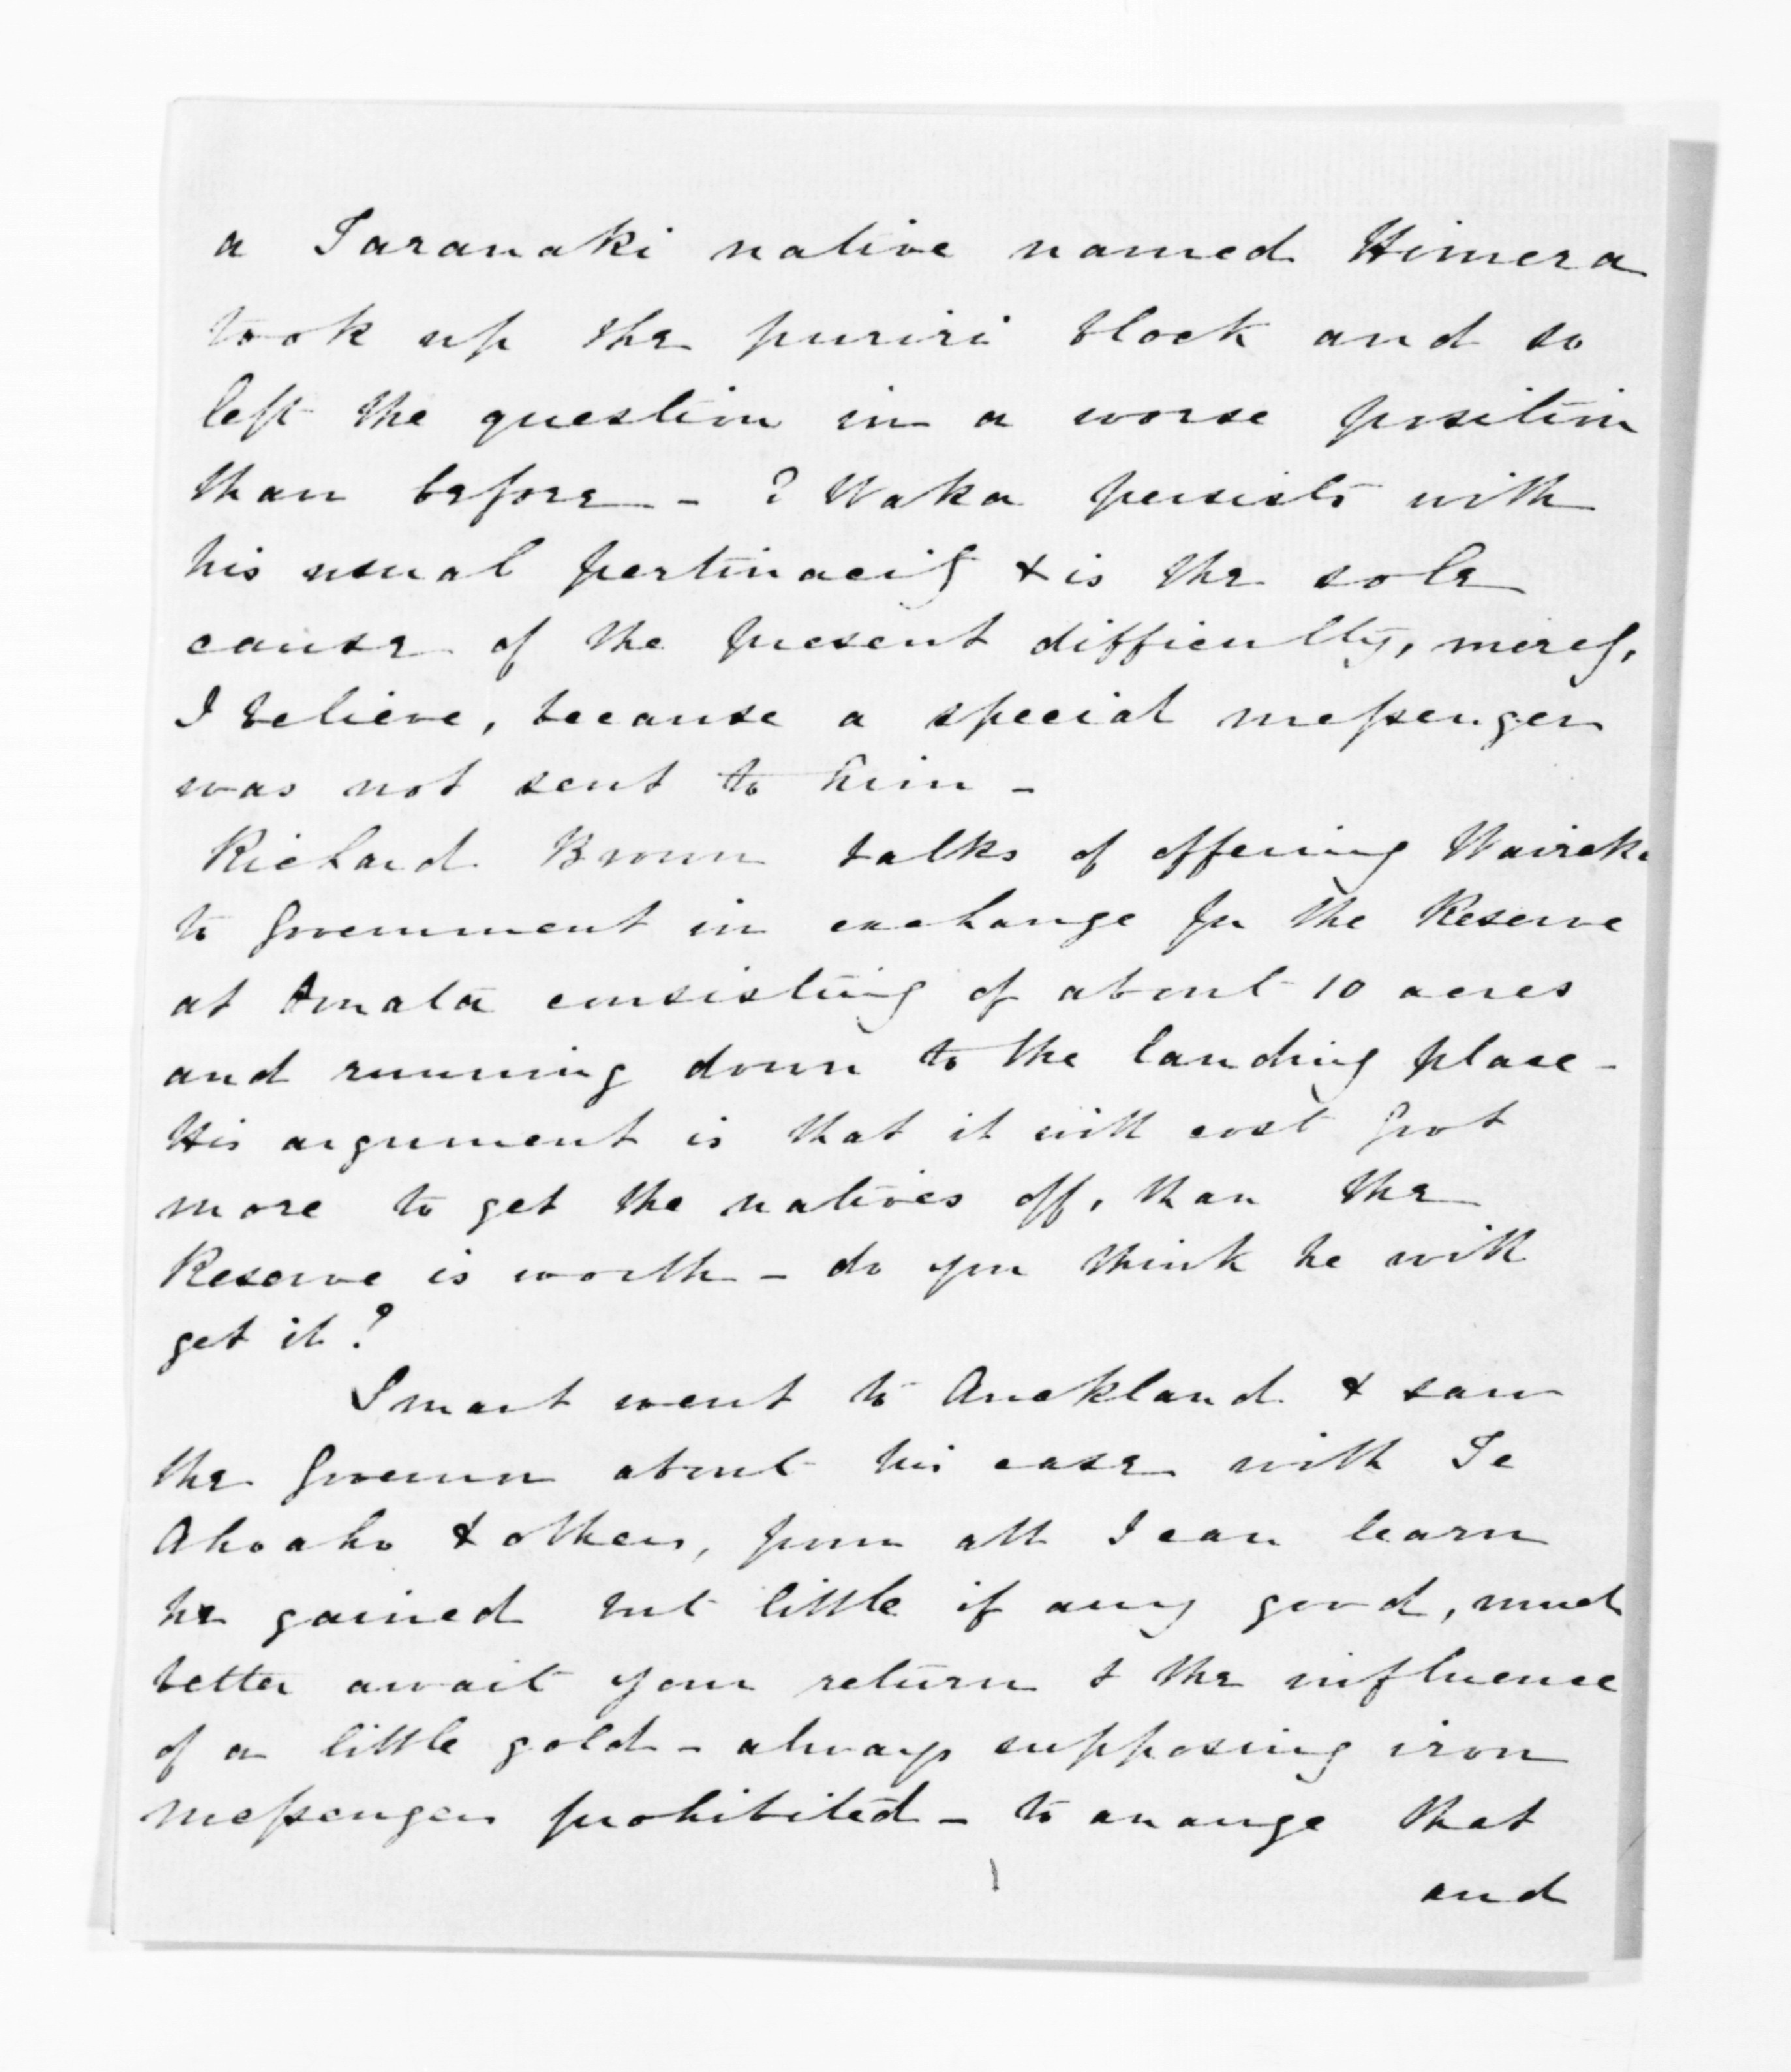 a Taranaki native named Himera
took up the puriri block and so
left the question in a worse position
than before - ? Waka persists with
his usual pertinacity & is the sole
cause of the present difficulty, merely,
I believe, because a special messenger
was not sent to him -
Richard Brown talks of offering Waireka
to Government in exchange for the Reserve
at Omata consisting of about 10 acres
and running down to the landing place -
His argument is that it will cost Govt
more to get the natives off, than the
Reserve is worth - do you think he will
get it?
Smart went to Auckland & saw
the Governor about his case with Te
Ahoaho & others, from all I can learn
he gained but little if any good, much
better await your return & the influence
of a little gold - always supposing iron
messengers prohibited - to arrange that
and